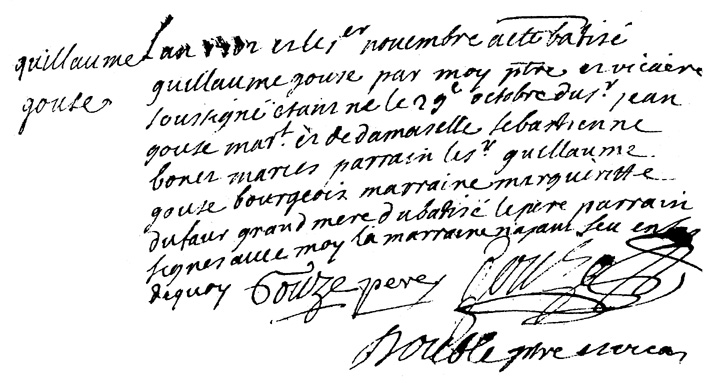 guillaume
gouse
Lan 1702 et le 1er novembre a ette batisé
guillaume gouse par moy ptre et vicaire
soussigné étant né le 29e octobre du sr jean
gouse mart et de damaselle sebastienne
bones mariés parrain le sr guillaume
gouse bourgeois marraine margueritte
dufaur grand mere du batisé le pere parrain
signes avec moy la marraine nayant seu
de quoy Gouze pere Gouze
ptre et vicar